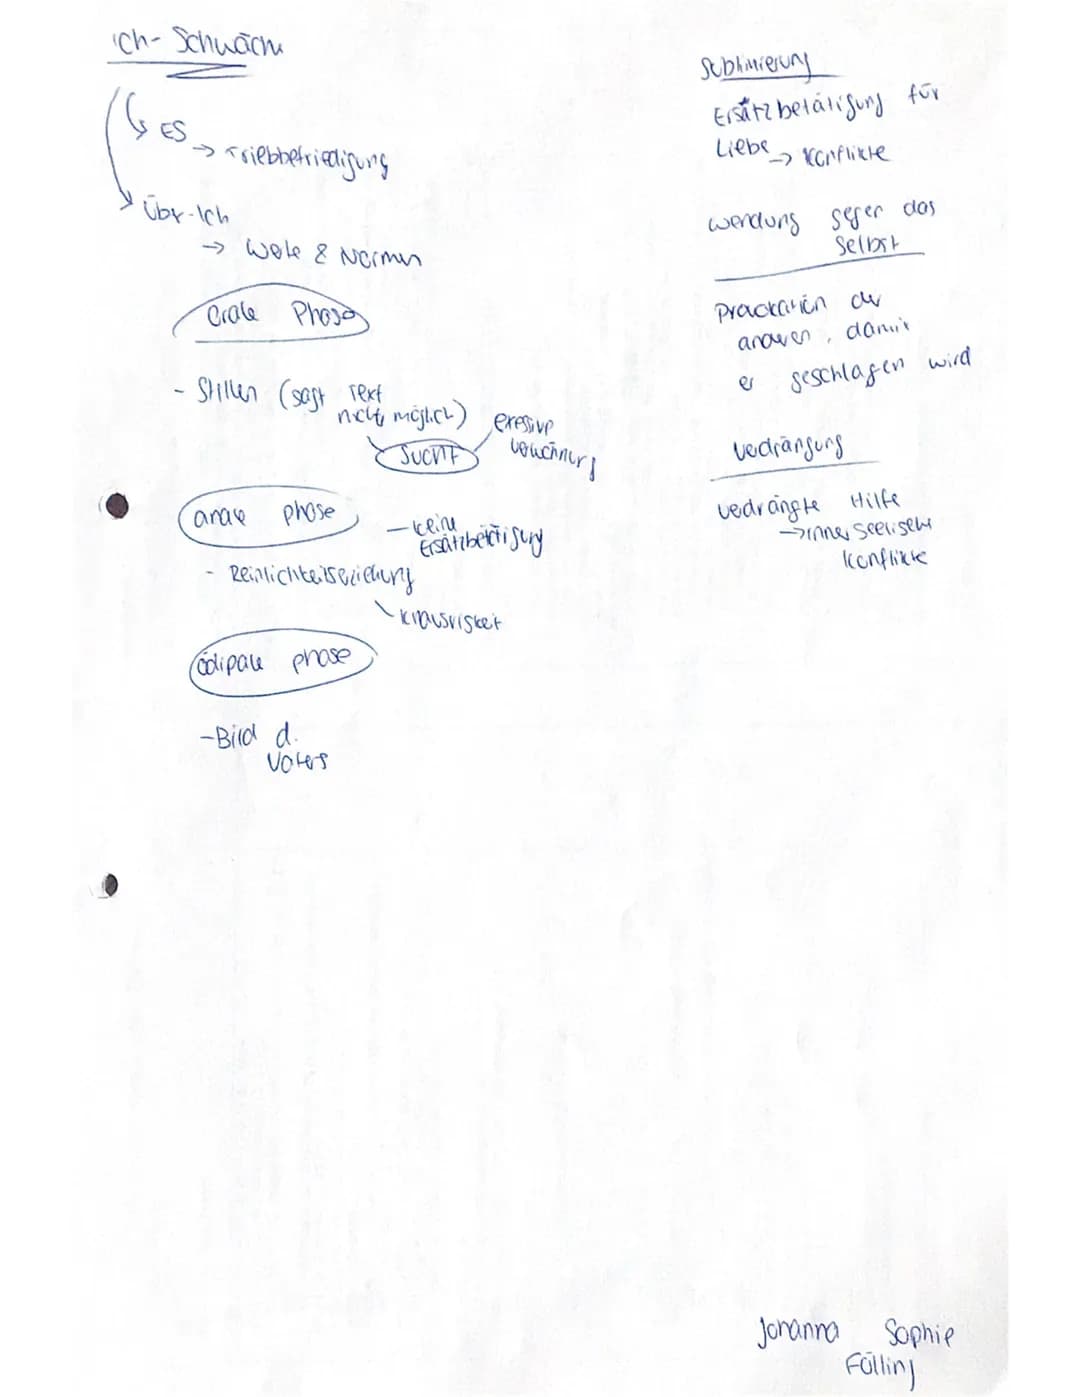 ich-Schwäche
ES
→ Triebbefriedigung
Übr-Ich
→ Werte & Normen
Orale Phase
- Stillen (sagt Text
nicht möglich)
exessive
Verwöhnung
Sucht
anale phase
- keine
Ersatzbetätigung
- Reinlichkeitserziehung
ödipale phase
- Bild d.
Vaters
Sublimierung
Ersatzbetätigung für
Liebe → Konflikte
wendung gegen das
Selbst
Provokation der
anderen, damit
er geschlagen wird
Verdrängung
verdrängte Hilfe
→ innerseelische
Konflikte
Johanna Sophie
Fülling